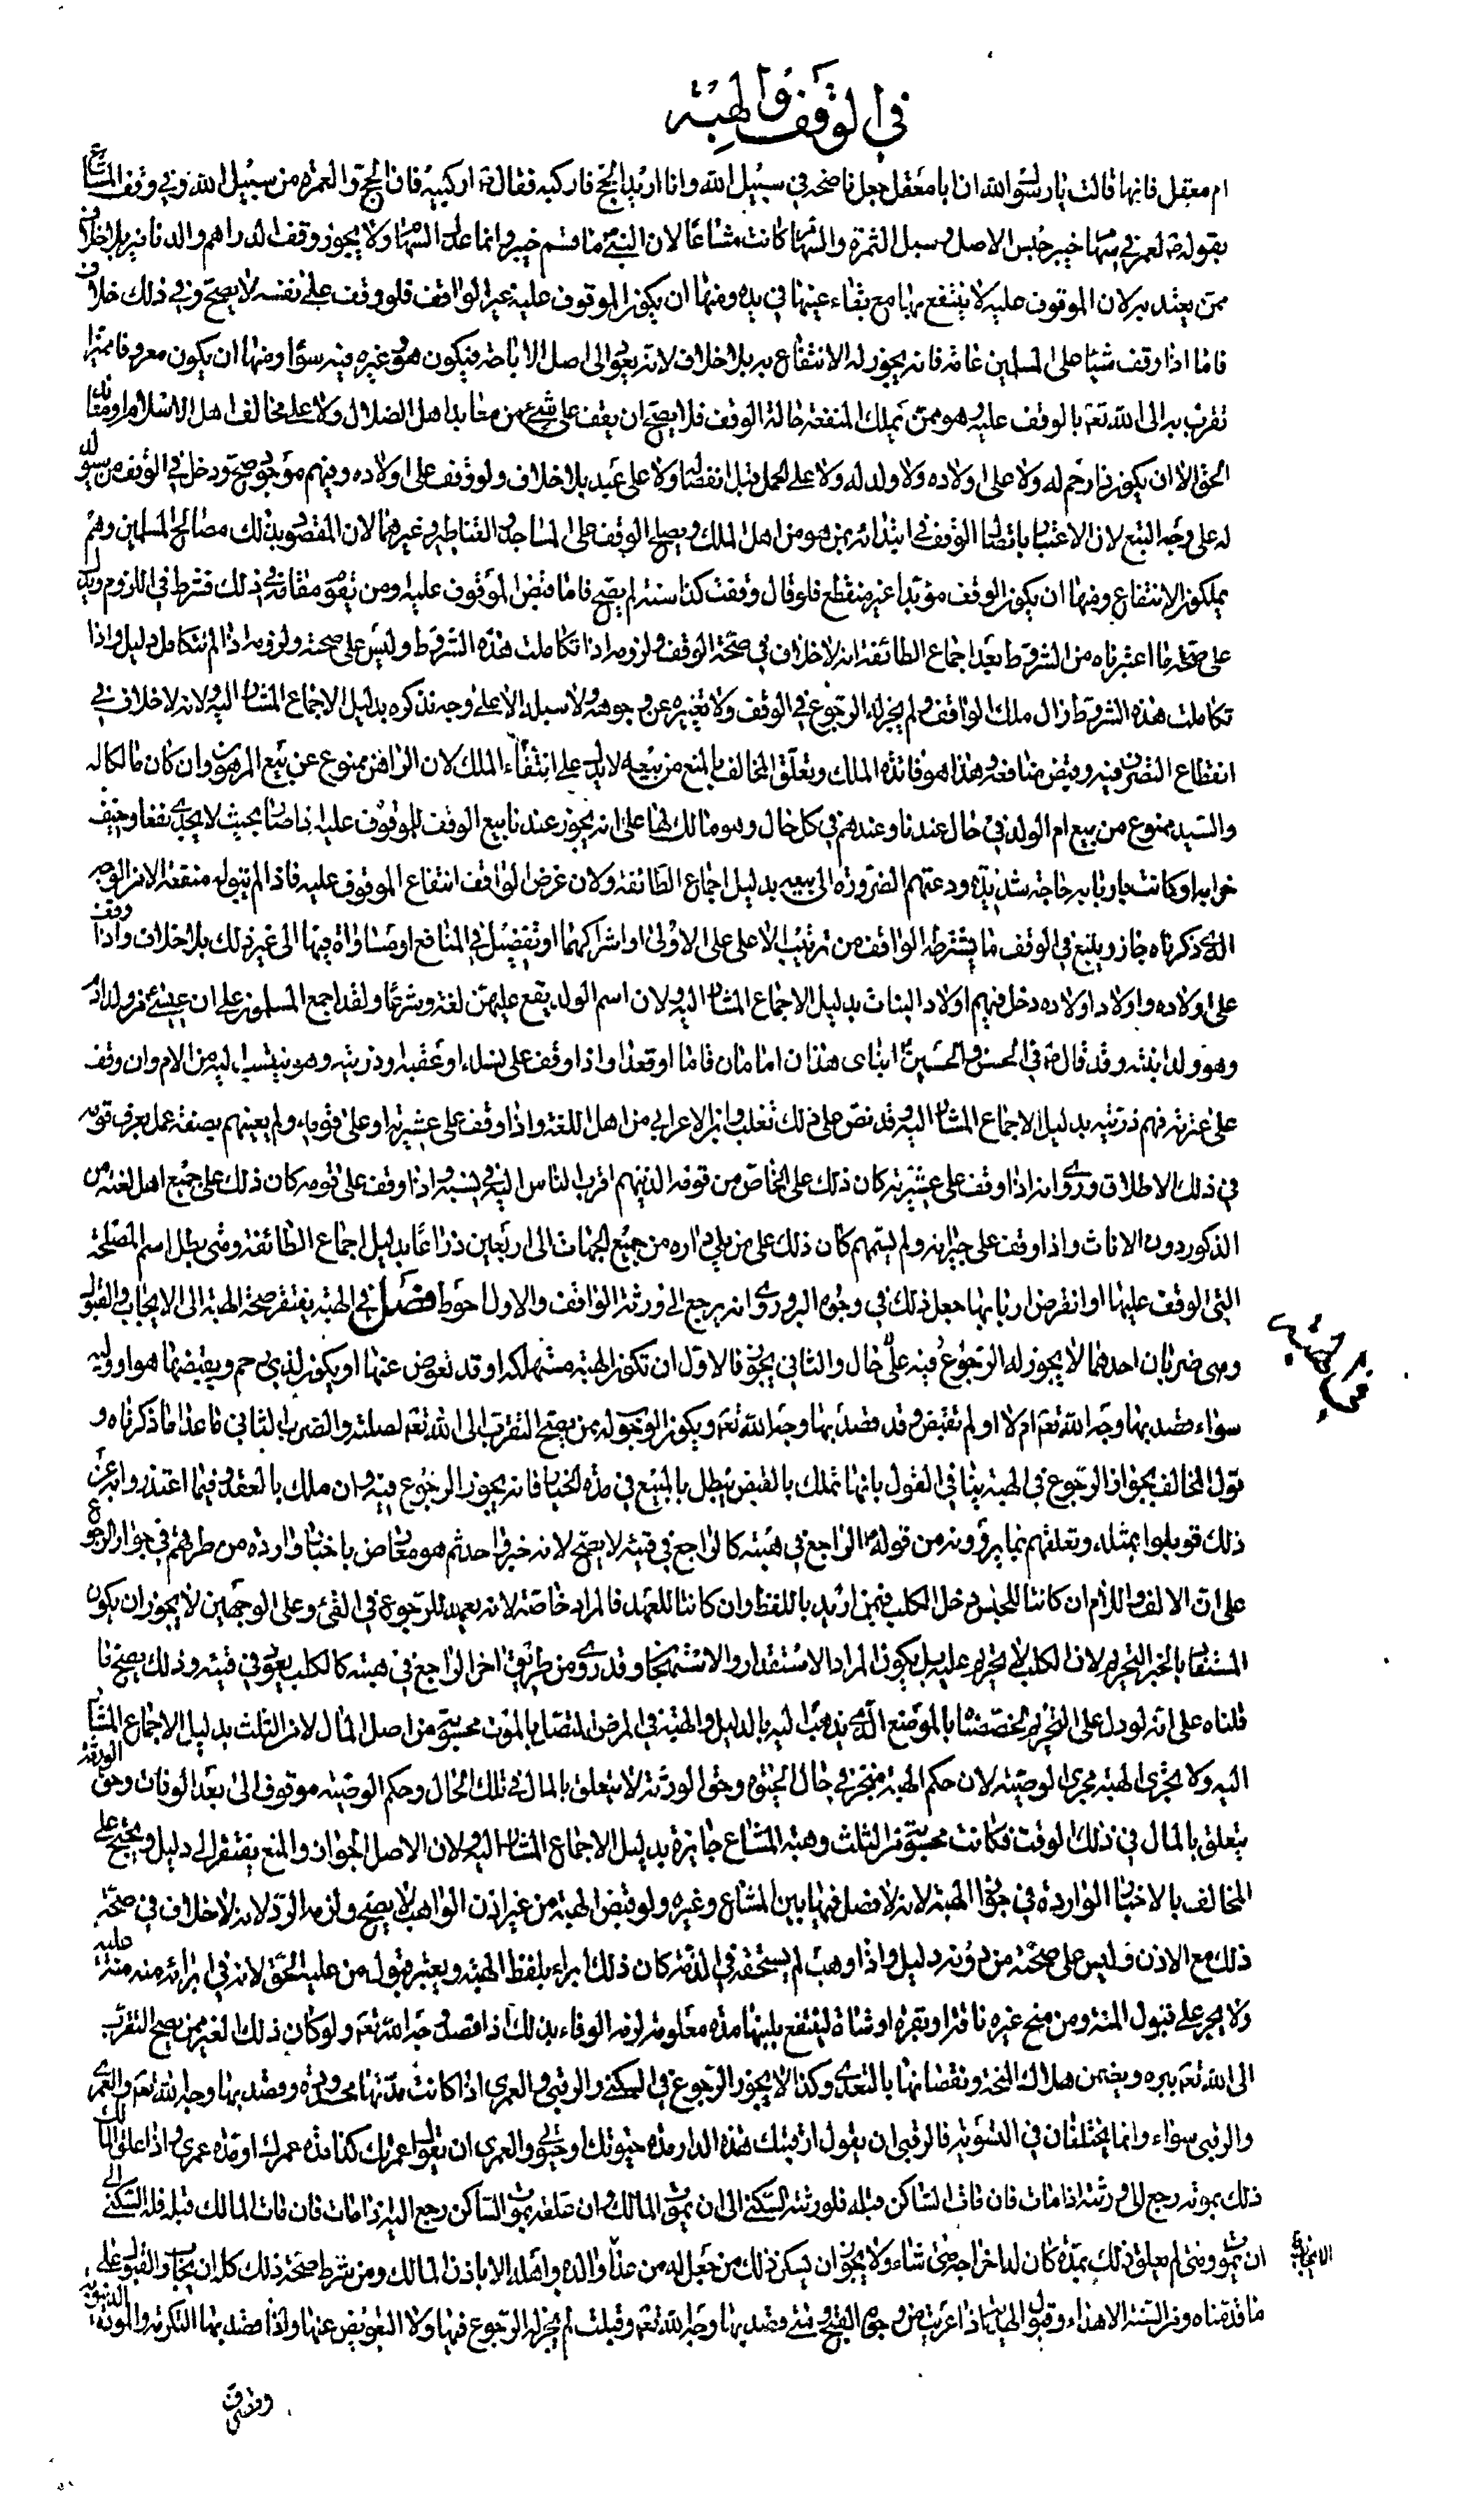 في الوقف والهبة
ام معقل فانها قالت يا رسول الله ان ابا معقل جعل ناضحه في سبيل الله وانا اريد الحج فاركبه فقال ع اركبيه فان الحج والعمرة من سبيل الله ويصح وقف المشاع
بقوله ع لعمر في سهام خيبر حبس الاصل وسبل الثمرة والسهام كانت مشاعا لان النبي ص ما قسم خيبر وانما عدل السهام ولا يجوز وقف الدراهم والدنانير بلا خلاف
ممن يعتد به لان الموقوف عليه لا ينتفع بها مع بقاء عينها في يده ومنها ان يكون الموقوف عليه غير الواقف فلو وقف على نفسه لا يصح وفي ذلك خلاف
فاما اذا وقف شيئا على المسلمين عامة فانه يجوز له الانتفاع به بلا خلاف لانه يعود الى اصل الاباحة فيكون هو وغيره فيه سواء ومنها ان يكون معروفا متميزا
تقرب به الى الله تعه بالوقف عليه وهو ممن يملك المنفعة حالة الوقف فلا يصح ان يقف على شيء من معابد اهل الضلال ولا على مخالف اهل الاسلام او معاند
الحق الا ان يكون ذا رحم له ولا على اولاده ولا ولد له ولا على الحمل قبل انفصاله ولا على عبد بلا خلاف ولو وقف على اولاده وفيهم موجود صح ودخل في الوقف من سيولد
له على وجه التبع لان الاعتبار باتصال الوقف في ابتدائه بمن هو من اهل الملك ويصح الوقف على المساجد والقناطير وغيرهما لان المقصود بذلك مصالح المسلمين وهم
يملكون الانتفاع ومنها ان يكون الوقف مؤبدا غير منقطع فلو قال وقفت كذا سنة لم يصح فاما قبض الموقوف عليه ومن يقوم مقامه في ذلك فشرط في اللزوم ويدل
على صحة ما اعتبرناه من الشروط بعد اجماع الطائفة انه لا خلاف في صحة الوقف ولزومه اذا تكاملت هذه الشروط وليس على صحته ولزومه اذا لم تتكامل دليل واذا
تكاملت هذه الشروط زال ملك الواقف ولم يجز له الرجوع في الوقف ولا تغييره عن وجوهه ولا سبله الا على وجه نذكره بدليل الاجماع المشار اليه ولانه لا خلاف في
انقطاع التصرف فيه وقبض منافعه وهذا هو فائدة الملك وتعلق المخالف بالمنع من بيعه لا يدل على انتفاء الملك لان الراهن ممنوع عن بيع المرهون وان كان مالكا له
والسيد ممنوع من بيع ام الولد في حال عندنا وعندهم في كل حال وهو مالك لها على انه يجوز عندنا بيع الوقف للموقوف عليه اذا صار بحيث لا يجدي نفعا وخيف
خرابه او كانت باربابه حاجة شديدة ودعتهم الضرورة الى بيعه بدليل اجماع الطائفة ولان غرض الواقف انتفاع الموقوف عليه فاذا لم تبق له منفعة الا من الوجه
الذي ذكرناه جاز ويتبع في الوقف ما يشترطه الواقف من ترتيب الاعلى على الادنى او اشراكهما او تفضيل في المنافع او مساواة فيها الى غير ذلك بلا خلاف واذا وقف
على اولاده واولاد اولاده دخل فيهم اولاد البنات بدليل الاجماع المشار اليه ولان اسم الولد يقع عليهم لغة وشرعا ولقد اجمع المسلمون على ان عيسى ع من ولد ادم
وهو ولد ابنته وقد قال ع في الحسن والحسين ابناى هذان امامان قاما او قعدا واذا وقف على نسله او عقبه او ذريته وهو ينتسب اليه من الام وان وقف
على عترته فهم ذريته بدليل الاجماع المشار اليه وقد نص على ذلك ثعلب وابن الاعرابي من اهل اللغة واذا وقف على عشيرته او على قومه ولم يعينهم بصفة عمل بعرف قومه
في ذلك الاطلاق وروي انه اذا وقف على عشيرته كان ذلك على الخاص من قومه الذين هم اقرب الناس اليه في نسبه واذا وقف على قومه كان ذلك على جميع اهل لغته من
الذكور دون الاناث واذا وقف على جيرانه ولم يسمهم كان ذلك على من يلي داره من جميع الجهات الى اربعين ذراعا بدليل اجماع الطائفة ومتى بطل اسم المصلحة
التي الوقف عليها او انقرض اربابها جعل ذلك في وجوه البر وروي انه يرجع الى ورثة الواقف والاول احوط فصل في الهبة يفتقر صحة الهبة الى الايجاب والقبول
وهي ضربان احدهما لا يجوز له الرجوع فيه على حال والثاني يجوز فالاول ان تكون الهبة مستهلكة او قد تعوض عنها او يكون لذي رحم ويقبضها هو او وليه
سواء قصد بها وجه الله تعه ام لا او لم تقبض وقد قصد بها وجه الله تعه ويكون الموهوب له ممن يصح التقرب الى الله تعه لصلته والضرب الثاني ما عدا ما ذكرناه و
قول المخالف بجواز الرجوع في الهبة ينافي القول بانها تملك بالقبض يبطل بالمبيع في مدة الخيار فانه يجوز الرجوع فيه وان ملك بالعقد وفيما اعتذروا به عن
ذلك قوبلوا بمثله وتعلقهم بما يروونه من قوله ع الراجع في هبته كالراجع في قيئه لا يصح لانه خبر واحد ثم هو معارض باخبار واردة من طرقهم في جواز الرجوع
على ان الالف واللام ان كانتا للجنس دخل الكلب فيمن اريد باللفظ وان كانتا للعهد فالمراد خاصة لانه يعهد للرجوع في القيء وعلى الوجهين لا يجوز ان يكون
المستفاد بالخبر التحريم لان الكلب لا تحريم عليه بل يكون المراد الاستقذار والاستهجان وقد روي من طريق اخر الراجع في هبته كالكلب يعود في قيئه وذلك يصحح ما
قلناه على انه لو دل على التحريم لخصصناه بالموضع الذي يذهب اليه بالدليل والهبة في المرض المتصل بالموت محسوبة من اصل المال لا من الثلث بدليل الاجماع المشار
اليه ولا تجري الهبة مجرى الوصية لان حكم الهبة منجز في حال الحيوة وحق الورثة لا يتعلق بالمال في تلك الحال وحكم الوصية موقوف الى بعد الوفات وحق الورثة
يتعلق بالمال في ذلك الوقت فكانت محسوبة من الثلث وهبة المشاع جايزة بدليل الاجماع المشار اليه ولان الاصل الجواز والمنع يفتقر الى دليل ويحتج على
المخالف بالاخبار الواردة في جواز الهبة لانه لا فصل فيها بين المشاع وغيره ولو قبض الهبة من غير اذن الواهب لا يصح ولزمه الرد لانه لا خلاف في صحة
ذلك مع الاذن وليس على صحته من دونه دليل واذا وهب لم يستحقه في الذمة كان ذلك ابراء بلفظ الهبة ويعتبر قبول من عليه الحق لانه في ابرائه منه منة عليه
ولا يجبر على قبول المنة ومن منح غيره ناقة او بقرة او شاة لينتفع بلبنها مدة معلومة لزمه الوفاء بذلك اذا قصد وجه الله تعه ولو كان ذلك الغير ممن يصح التقرب
الى الله تعه ببره ويضمن هلاك المنحة ونقصانها بالتعدي وكذا لا يجوز الرجوع في السكنى والرقبى والعمرى اذا كانت مدتها محدودة وقصد بها وجه الله تعه والعمرى
والرقبى سواء وانما يختلفان في التسوية فالرقبى ان يقول ارقبتك هذه الدار مدة حيوتك او حيوتي والعمرى ان يقول اعمرتك كذا مدة عمرك او مدة عمري واذا علق المالك
ذلك بموته رجع الى ورثته اذا مات فان مات الساكن قبله فلورثته السكنى الى ان يموت المالك وان علقه بموت الساكن رجع اليه اذا مات فان مات المالك قبله فله السكنى الى
ان يموت ومتى لم يعلق ذلك بمدة كان له اخراجه متى شاء ولا يجوز ان يسكن ذلك من جعل له من عدا والده واهله الا باذن المالك ومن شرط صحة ذلك كله الايجاب والقبول على
ما قدمناه ومن السنة الاهداء وقبول الهدية اذا عريت من وجوه القبح ومتى قصد بها وجه الله تعه وقبلت لم يجز له الرجوع فيها ولا التعويض عنها واذا قصد بها التكرمة والمودة الدنيوية